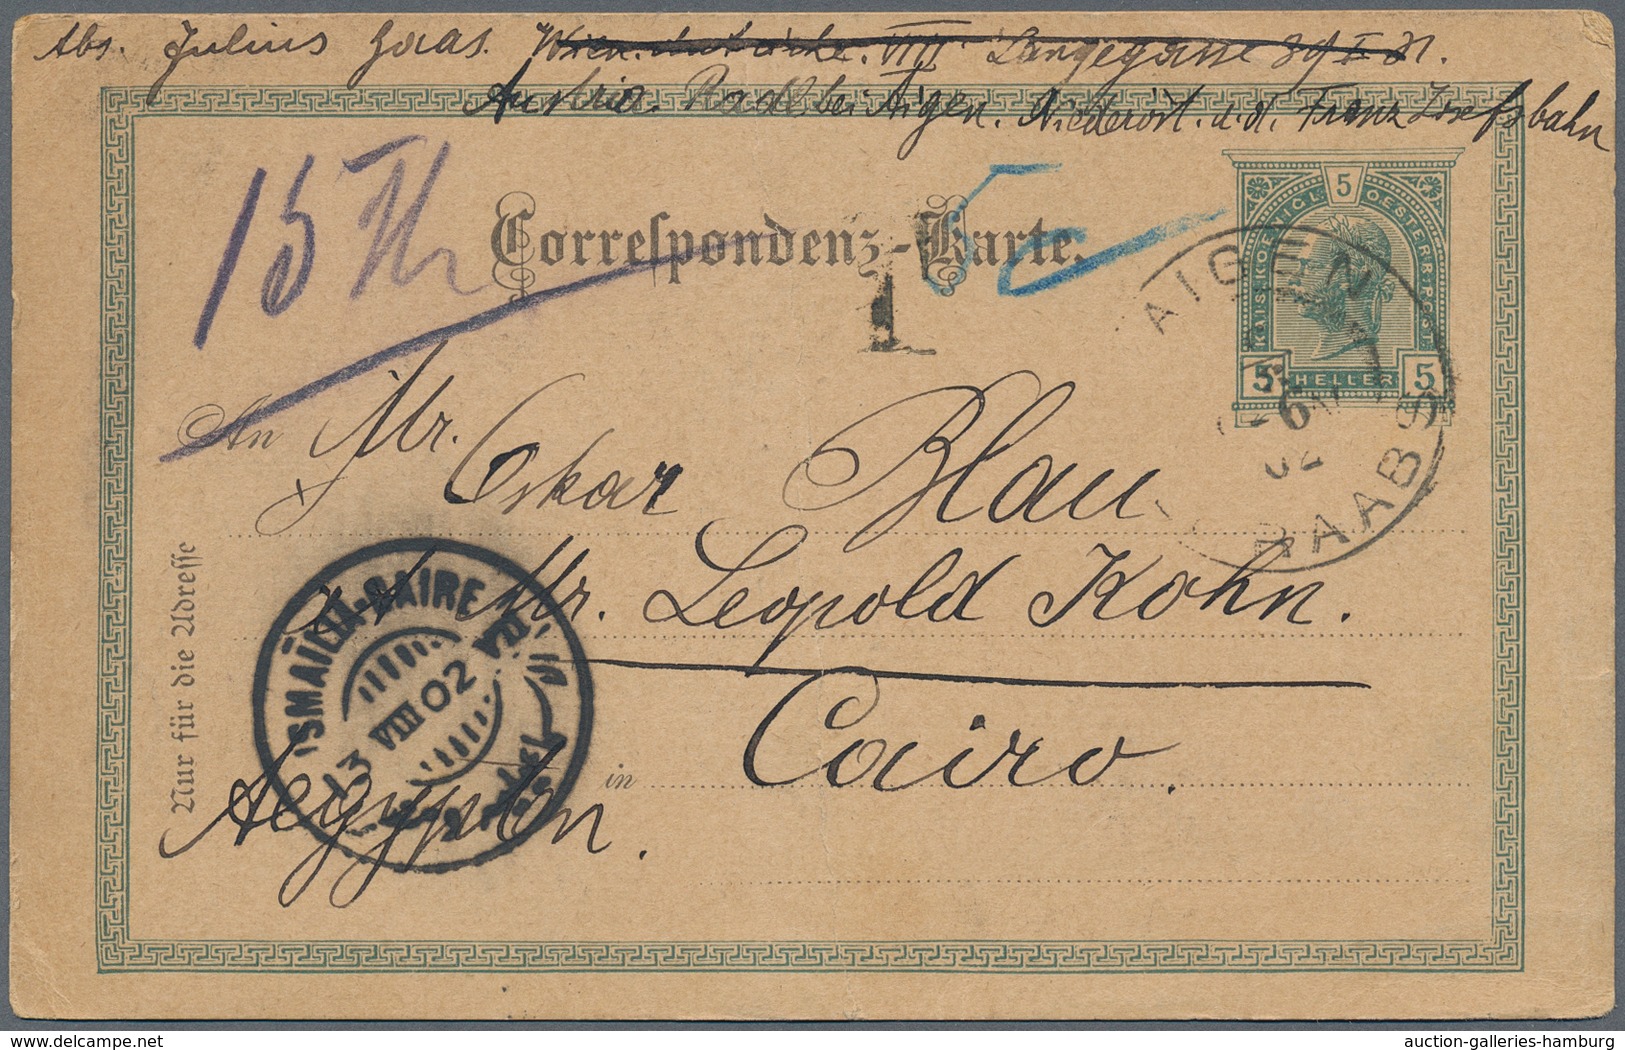 Abs. Julius Haas. Wien. VIII Langegasse 39 I 21.
Austria. Radl bei Aigen. Niederöst. a.d. Franz Josefsbahn
15 Th
5 c
Correspondenz-Karte.
KAIS. KOENIGL. 5 OESTERR. POST
5 HELLER 5
AIGEN
6
02
RAABS
T
An Mr. Oskar Blau
Mr. Leopold Kohn.
in Cairo.
Aegypten.
Nur für die Adresse
ISMAÏLIA-CAIRE
13 VIII 02 VII
auction-galleries-hamburg